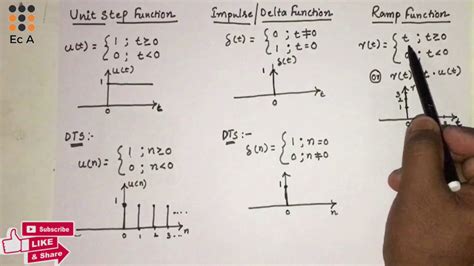 Ec A
Unit Step Function
u(t) = { 1 ; t≥0
0 ; t<0
u(t)
1
t
DTS:-
u(n) = { 1 ; n≥0
0 ; n<0
u(n)
1
0 1 2 3 ....
n
Impulse/Delta Function
δ(t) = { 0 ; t≠0
1 ; t=0
δ(t)
1
t
DTS:-
δ(n) = { 1 ; n=0
0 ; n≠0
1
0
n
Ramp Function
r(t) = { t ; t≥0
0 ; t<0
or r(t) t·u(t)
3
2
1
0
t
Subscribe
LIKE
& Share